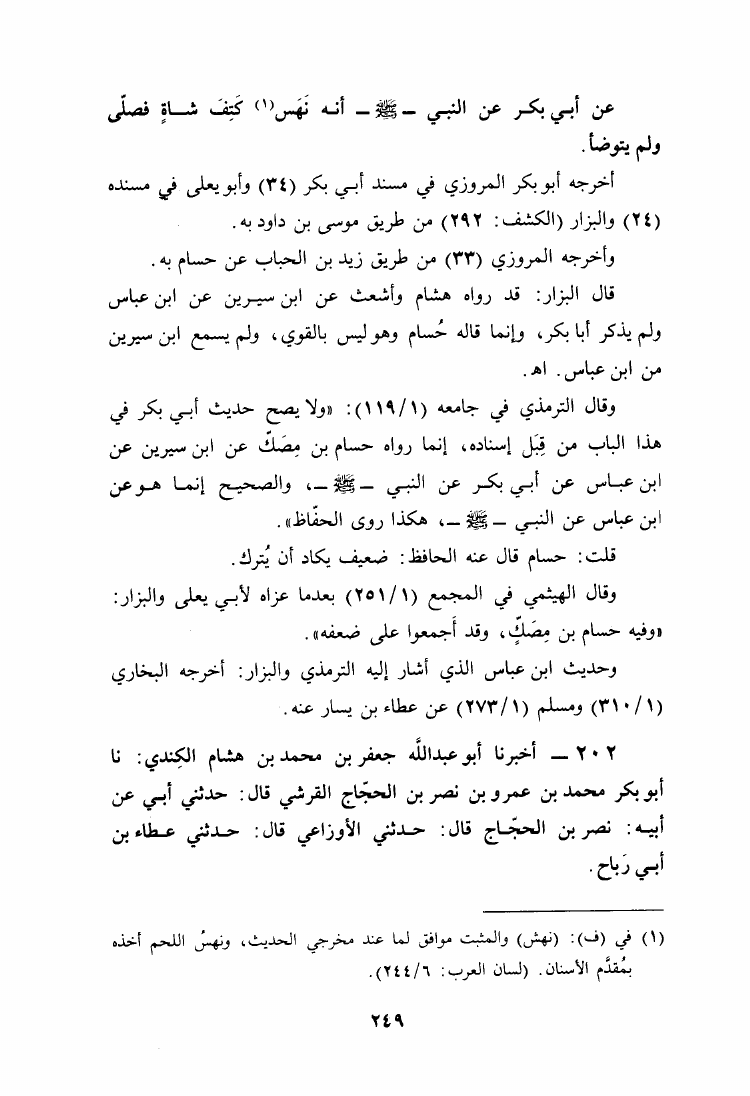 عن أبي بكر عن النبي ــ ﷺ ــ أنه نَهَس(١) كَتِفَ شاةٍ فصلّى
ولم يتوضأ.
أخرجه أبو بكر المروزي في مسند أبي بكر (٣٤) وأبو يعلى في مسنده
(٢٤) والبزار (الكشف: ٢٩٢) من طريق موسى بن داود به.
وأخرجه المروزي (٣٣) من طريق زيد بن الحباب عن حسام به.
قال البزار: قد رواه هشام وأشعث عن ابن سيرين عن ابن عباس
ولم يذكر أبا بكر، وإنما قاله حُسام وهو ليس بالقوي، ولم يسمع ابن سيرين
من ابن عباس. اهـ.
وقال الترمذي في جامعه (١١٩/١): «ولا يصح حديث أبي بكر في
هذا الباب من قِبَل إسناده، إنما رواه حسام بن مِصَكّ عن ابن سيرين عن
ابن عباس عن أبي بكر عن النبي ــ ﷺ ــ، والصحيح إنما هو عن
ابن عباس عن النبي ــ ﷺ ــ، هكذا روى الحفّاظ».
قلت: حسام قال عنه الحافظ: ضعيف يكاد أن يُترك.
وقال الهيثمي في المجمع (٢٥١/١) بعدما عزاه لأبي يعلى والبزار:
«وفيه حسام بن مِصَكٍّ، وقد أجمعوا على ضعفه».
وحديث ابن عباس الذي أشار إليه الترمذي والبزار: أخرجه البخاري
(٣١٠/١) ومسلم (٢٧٣/١) عن عطاء بن يسار عنه.
٢٠٢ ــ أخبرنا أبو عبدالله جعفر بن محمد بن هشام الكِندي: نا
أبو بكر محمد بن عمرو بن نصر بن الحجّاج القرشي قال: حدثني أبي عن
أبيه: نصر بن الحجّاج قال: حدثني الأوزاعي قال: حدثني عطاء بن
أبي رَباح.
(١) في (ف): (نهش) والمثبت موافق لما عند مخرجي الحديث، ونهسُ اللحم أخذه
بمُقدَّم الأسنان. (لسان العرب: ٢٤٤/٦).
٢٤٩